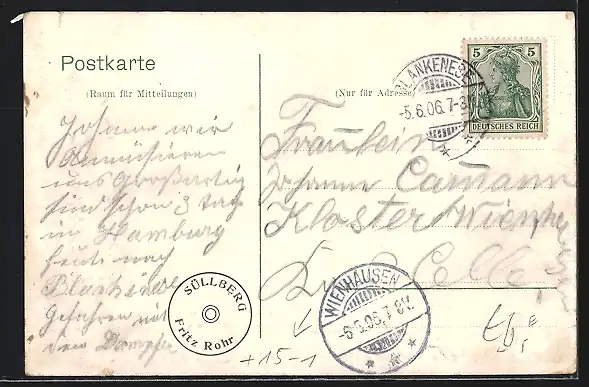 Postkarte
(Raum für Mitteilungen)
(Nur für Adresse)
Johanne wir
Amüsieren
uns Großartig
sind schon 3 tag
in Hamburg
heute nach
Gefahren mit
den Dampfer
SÜLLBERG
Fritz Rohr
BLANKENESE
-5.6.06.7-8
5 5
DEUTSCHES REICH
Fräulein
Johanne Camann
Kloster Wienhausen
Celle
WIENHAUSEN
-6.6.06.7-8V.
+15-1